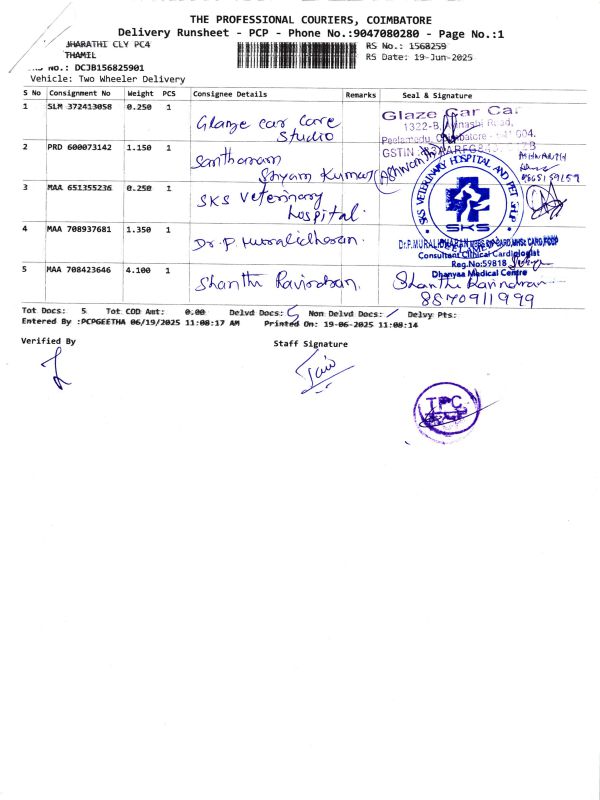 THE PROFESSIONAL COURIERS, COIMBATORE
Delivery Runsheet - PCP - Phone No.:9047080280 - Page No.:1
JHARATHI CLY PC4
THAMIL
RS No.: 1568259
RS Date: 19-Jun-2025
No.: DCJB156825901
Vehicle: Two Wheeler Delivery
S No Consignment No Weight PCS Consignee Details Remarks Seal & Signature
1 SLM 372413058 0.250 1
Glanze car care
Studio
Glaze Car Car
1322-B, Avinashi Road,
Peelamedu, Coimbatore - 641 004.
GSTIN
2 PRD 600073142 1.150 1
Santhanam
Shyam Kumar (Ashwanth)
3 MAA 651355236 0.250 1
SKS Veterinary
hospital.
SKS VETERINARY HOSPITAL AND PET SHOP
SKS
PEELAMEDU
4 MAA 708937681 1.350 1
Dr. P. Muralidharan.
Dr.P.MURALIDHARAN
Consultant Clinical Cardiologist
Reg.No:59818
Dhanyaa Medical Centre
5 MAA 708423646 4.100 1
Shanthi Ravindran.
Shanthi Ravindran
8870911999
Tot Docs: 5 Tot COD Amt: 0.00 Delvd Docs: 5 Non Delvd Docs: / Delvy Pts:
Entered By :PCPGEETHA 06/19/2025 11:08:17 AM Printed On: 19-06-2025 11:08:14
Verified By
Staff Signature
TPC